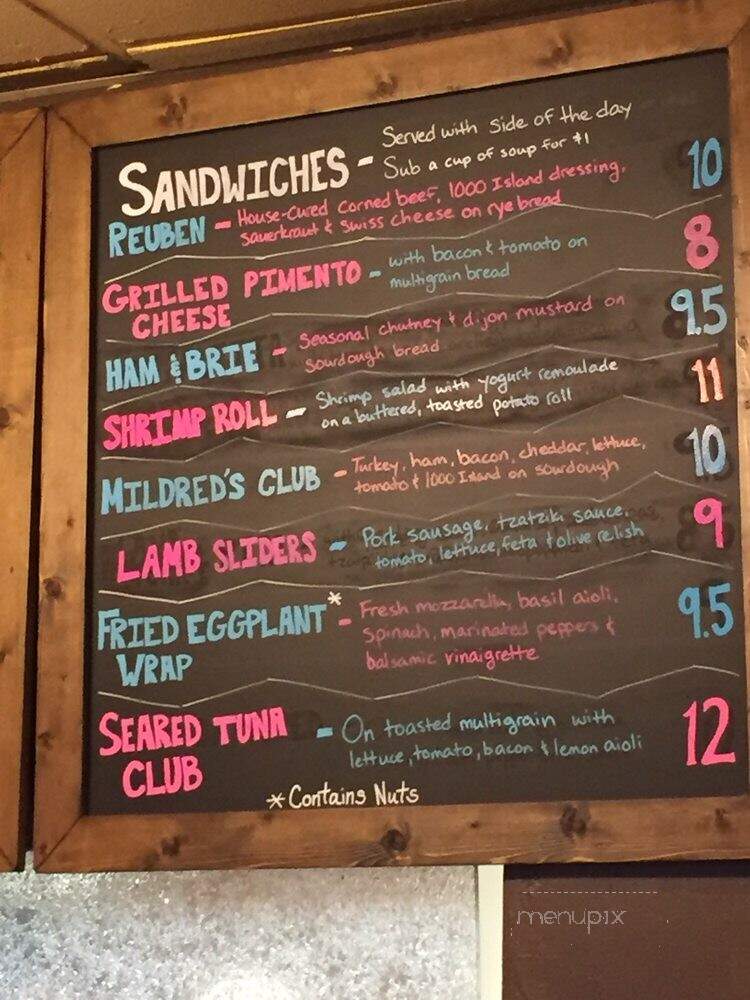 SANDWICHES - Served with side of the day
Sub a cup of soup for $1
REUBEN - House-Cured Corned beef, 1000 Island dressing, 10
Sauerkraut & Swiss cheese on rye bread
GRILLED PIMENTO - with bacon & tomato on 8
CHEESE multigrain bread
HAM & BRIE - Seasonal chutney & dijon mustard on 9.5
Sourdough bread
SHRIMP ROLL - Shrimp salad with yogurt remoulade 11
on a buttered, toasted potato roll
MILDRED'S CLUB - Turkey, ham, bacon, cheddar, lettuce, 10
tomato & 1000 Island on sourdough
LAMB SLIDERS - Pork sausage, tzatziki sauce, 9
tomato, lettuce, feta & olive relish
FRIED EGGPLANT* - Fresh mozzarella, basil aioli, 9.5
WRAP Spinach, marinated peppers &
balsamic vinaigrette
SEARED TUNA - On toasted multigrain with 12
CLUB lettuce, tomato, bacon & lemon aioli
* Contains Nuts
menupix